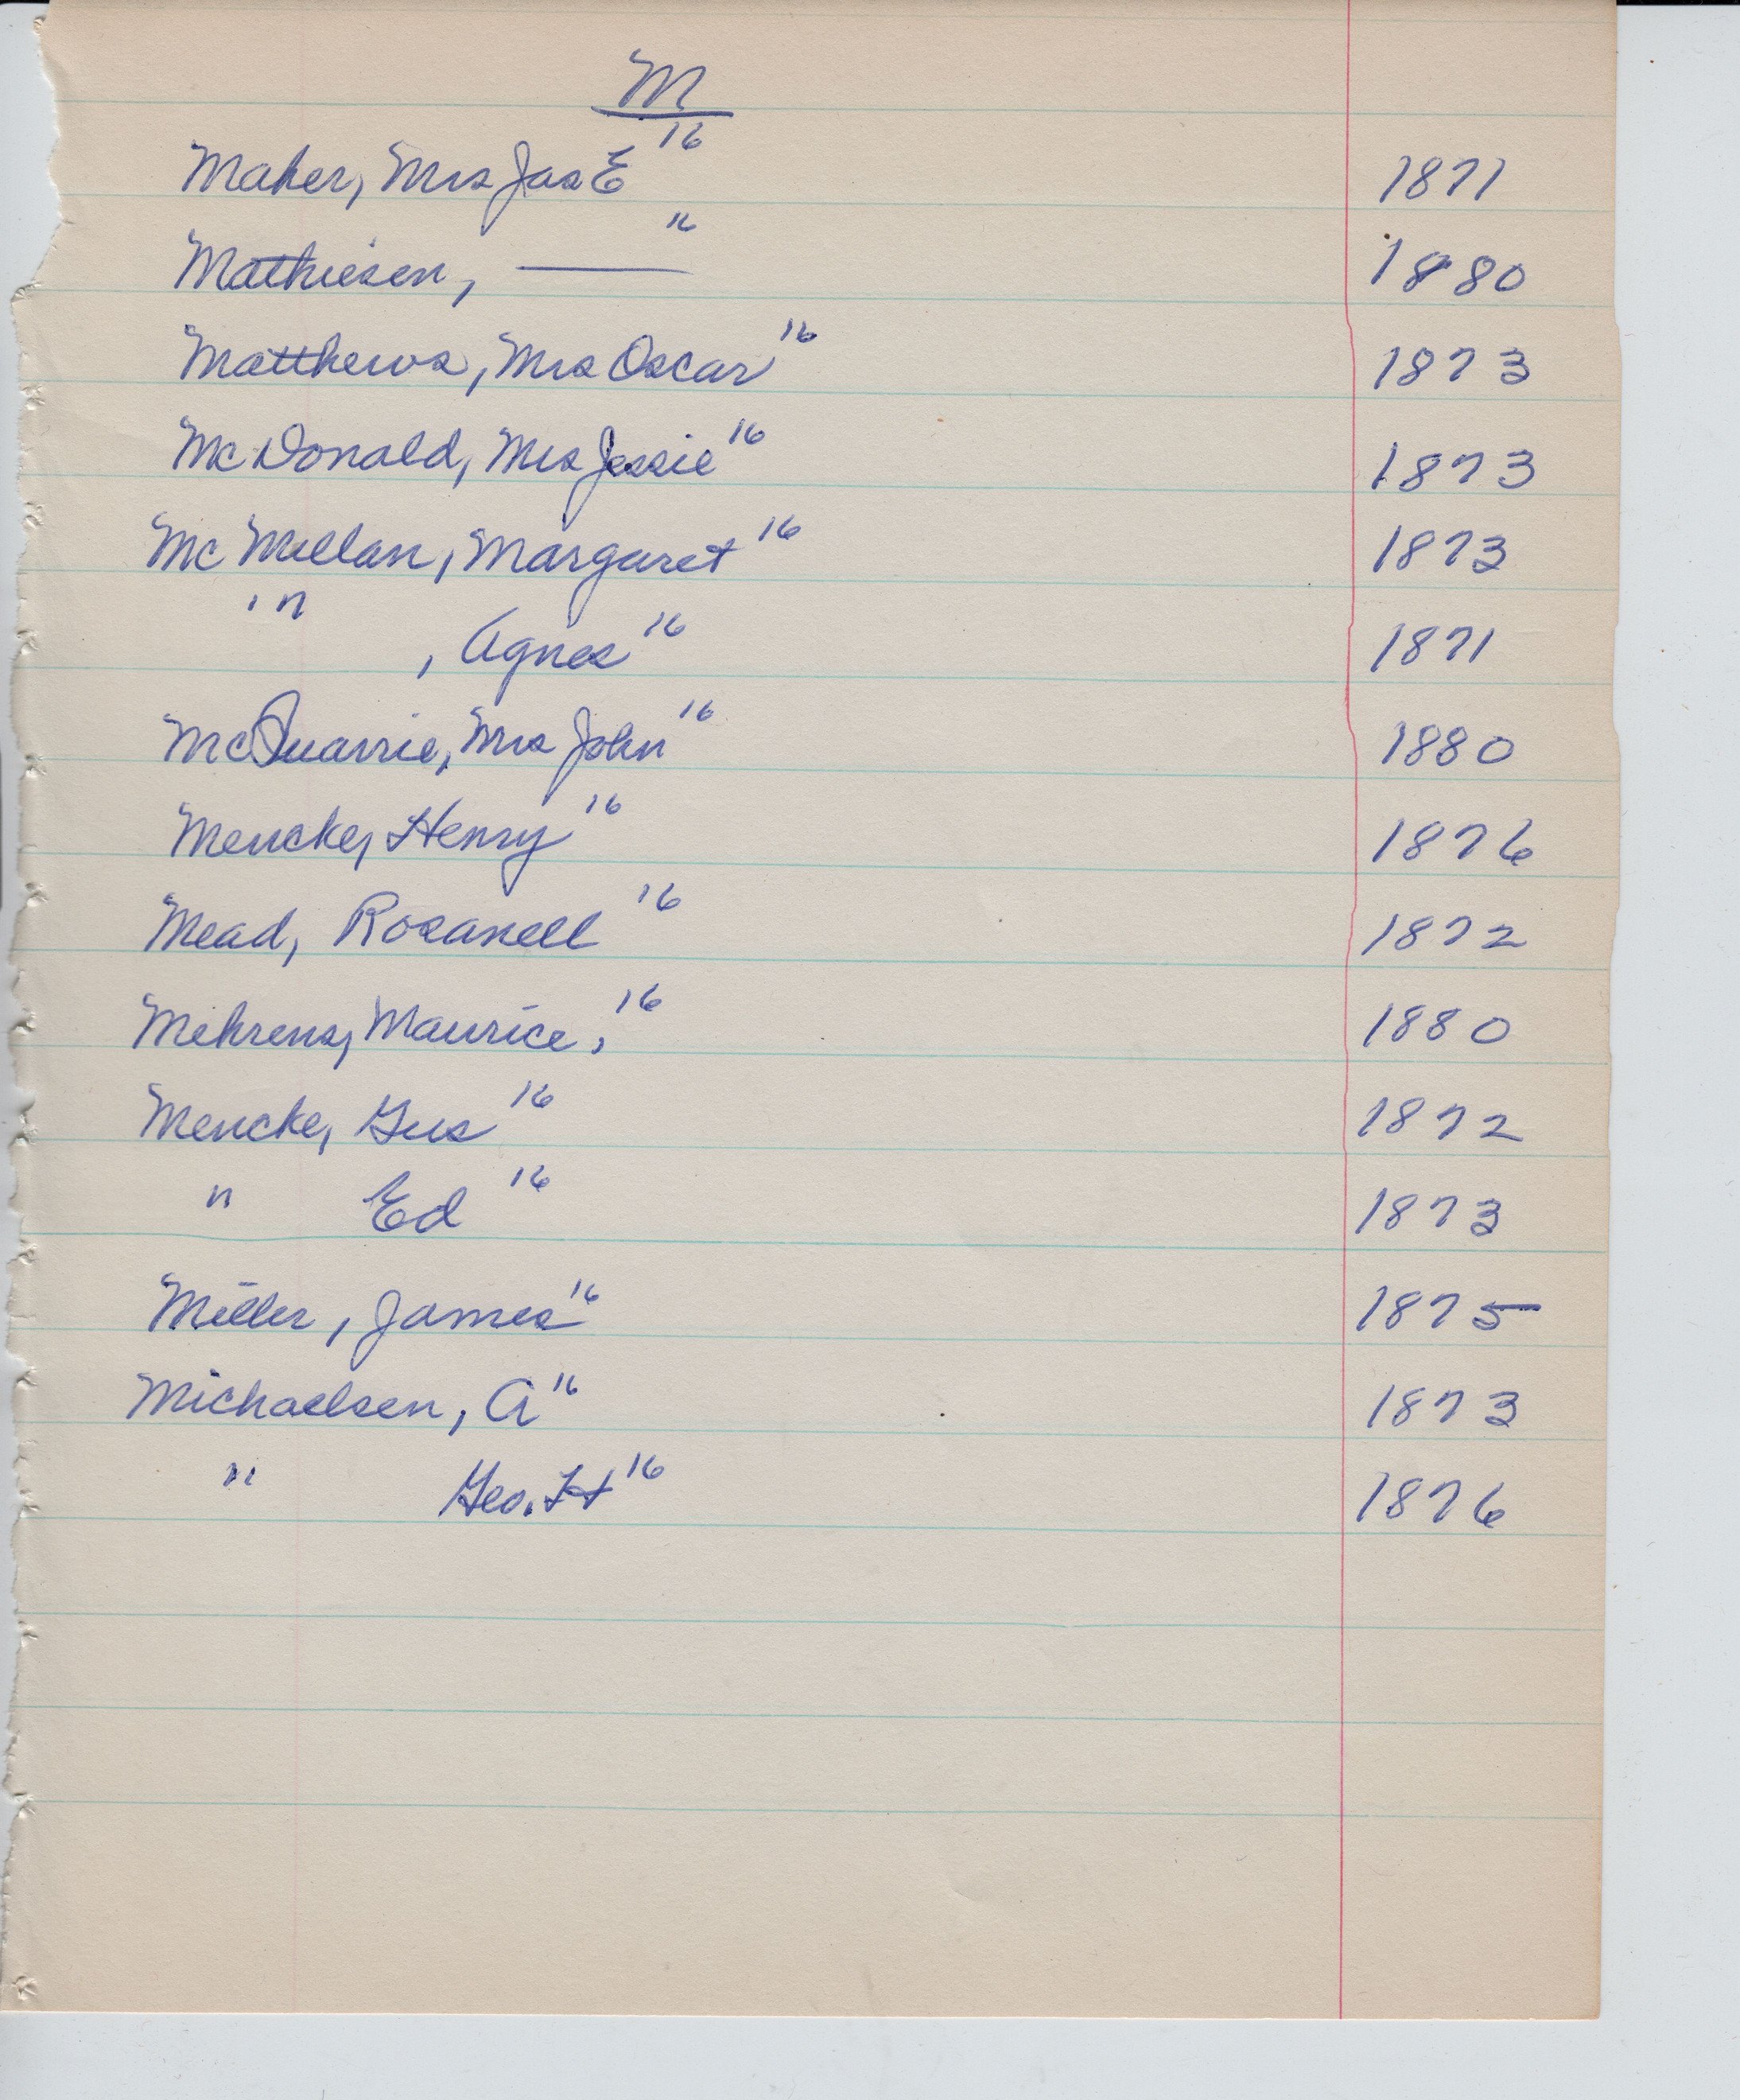 M
Maher, Mrs Jas E 16 1871
Mathiesen, — 16 1880
Matthews, Mrs Oscar 16 1873
McDonald, Mrs Jessie 16 1873
McMillan, Margaret 16 1873
" , Agnes 16 1871
McQuarrie, Mrs John 16 1880
Mencke, Henry 16 1876
Mead, Rosanell 16 1872
Mehrens, Maurice, 16 1880
Mencke, Gus 16 1872
" Ed 16 1873
Miller, James 16 1875
Michaelsen, A 16 1873
" Geo. H 16 1876